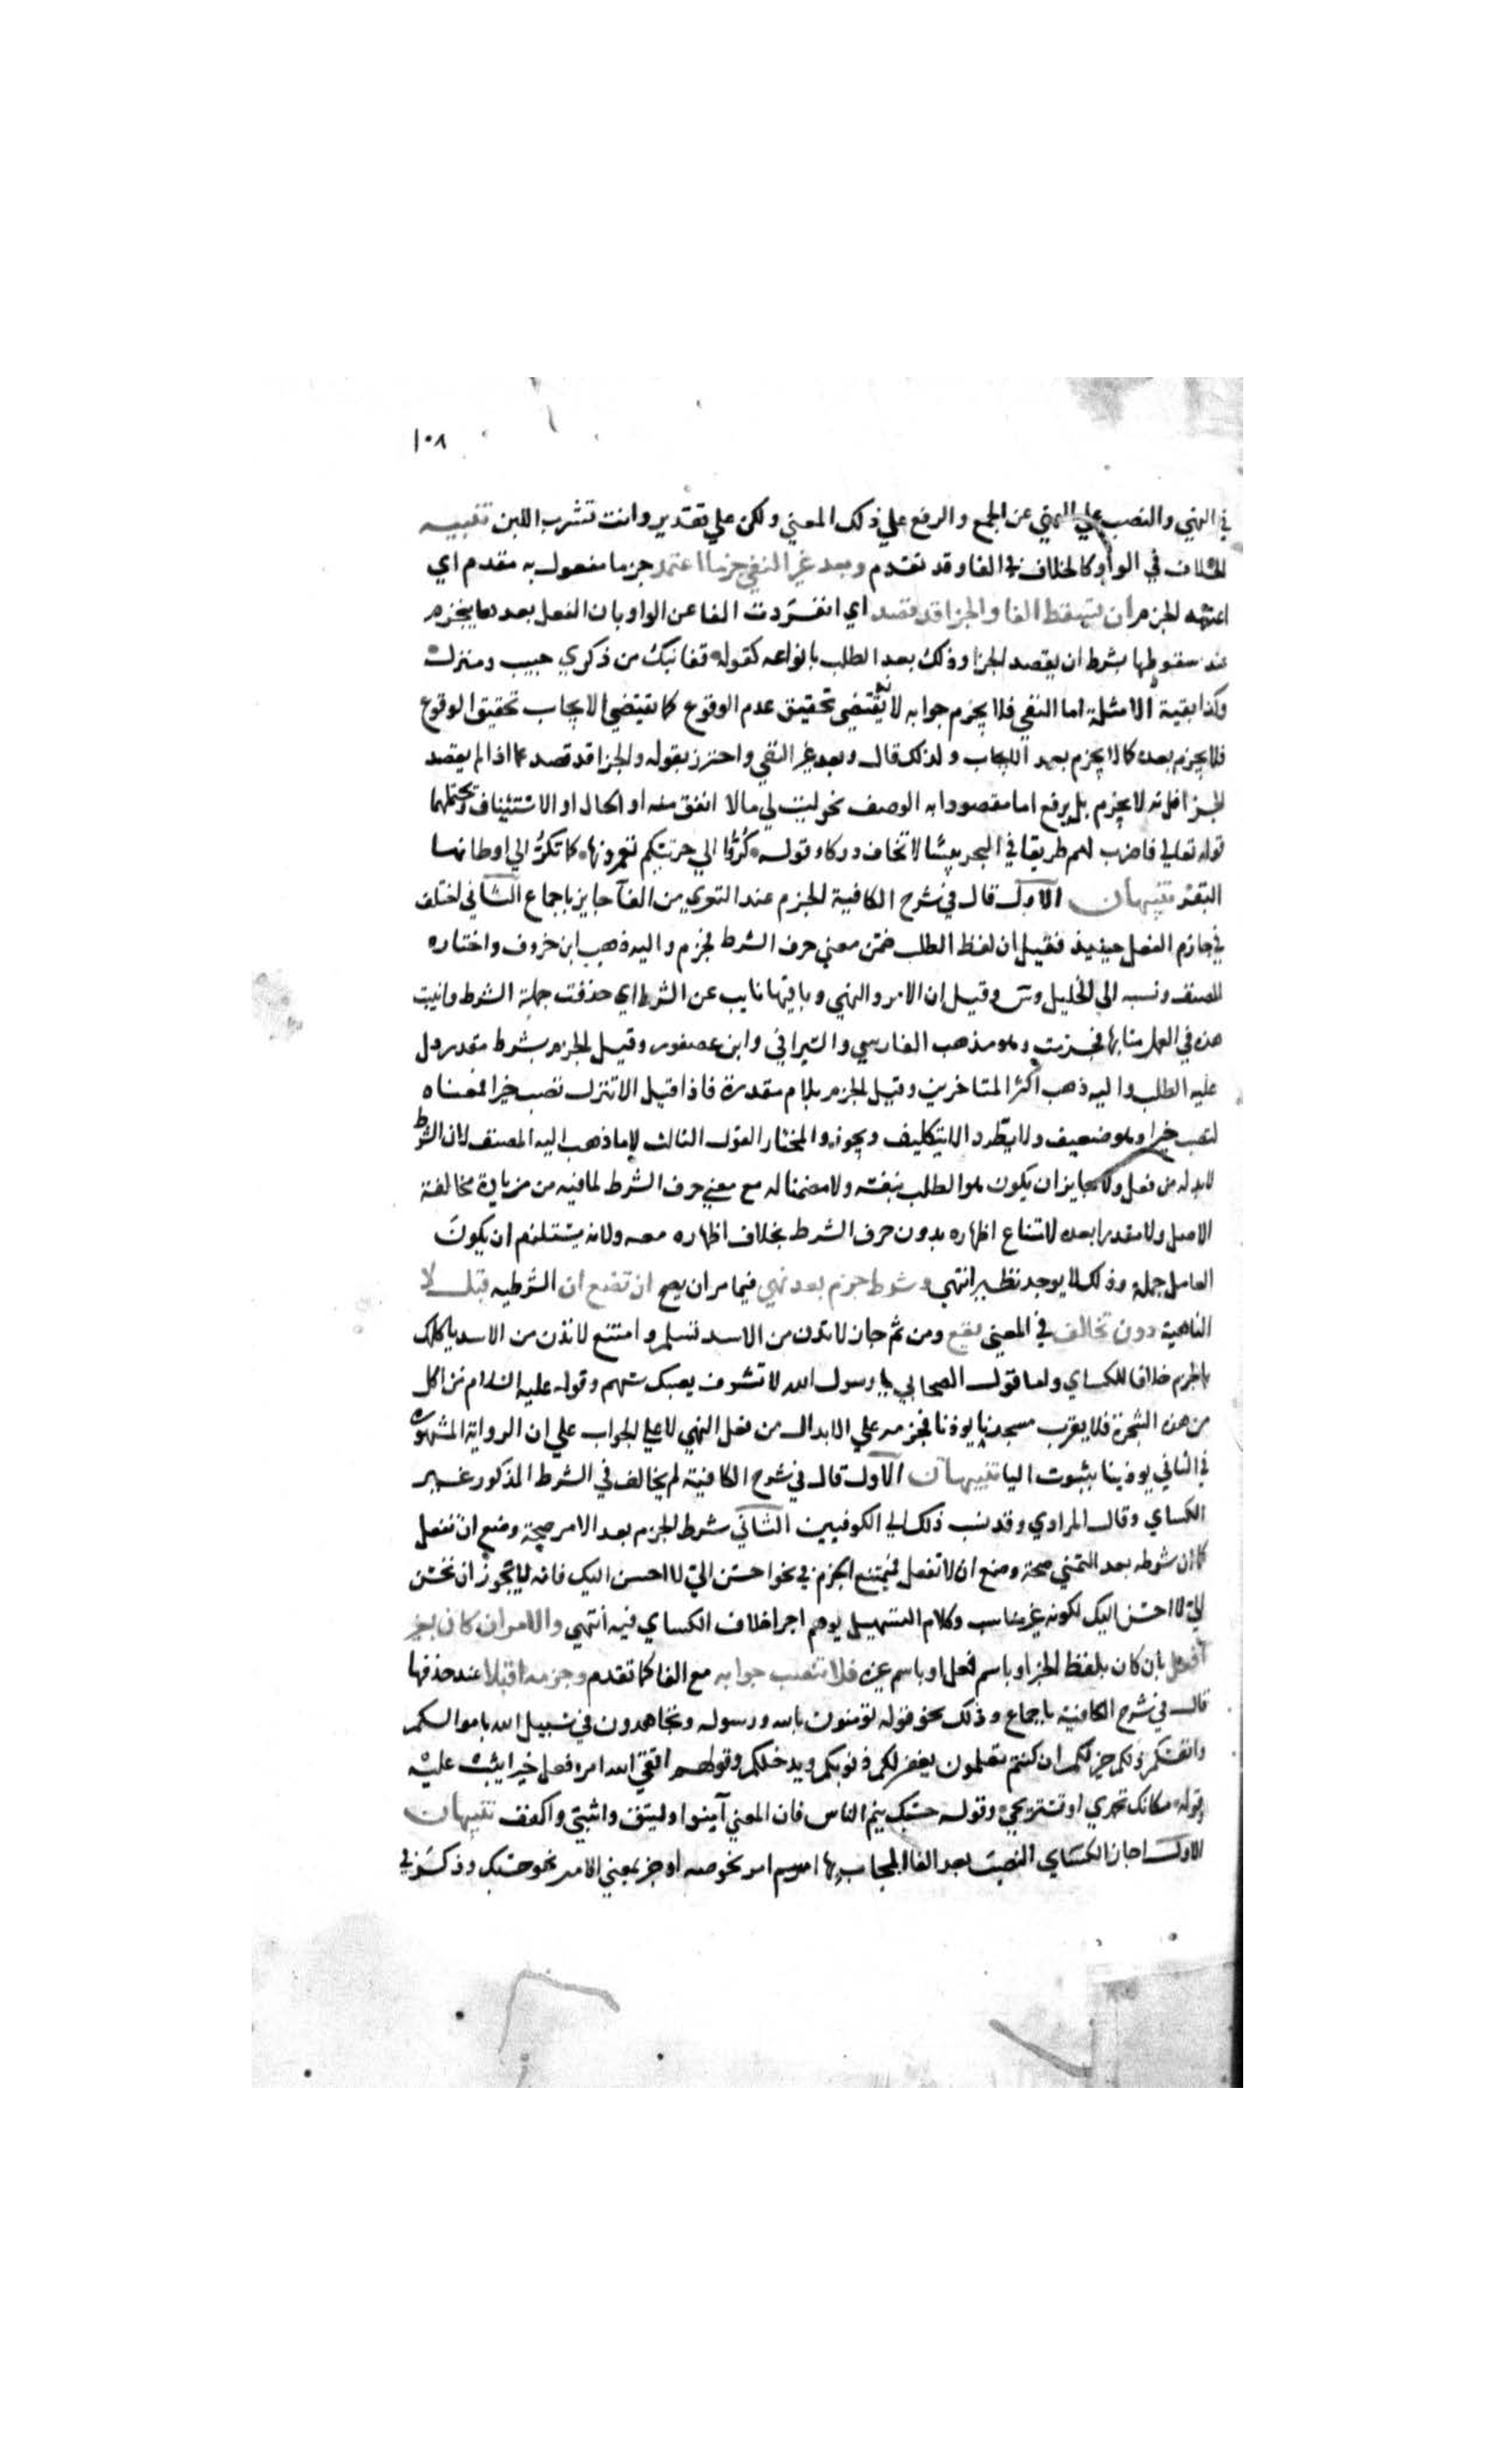 ١٠٨
في النهي والنصب علي النهي عن الجمع والرفع علي ذلك المعني ولكن علي تقدير وانت تشرب اللبن تنبيه
الخلاف في الواو كالخلاف في الفا وقد تقدم وبعد غير النفي جزما اعتمد جزما مفعول به مقدم اي
اعتمد الجزم ان تسقط الفا والجزا قد قصد اي انفردت الفا عن الواو بان الفعل بعدها ينجزم
عند سقوطها بشرط ان يقصد الجزا وذلك بعد الطلب بانواعه كقوله قفا نبك من ذكري حبيب ومنزل
وكذا بقية الامثلة اما النفي فلا يجزم جوابه لانه يقتضي تحقيق عدم الوقوع كما يقتضي الايجاب تحقيق الوقوع
فلا يجزم بعده كما لا يجزم بعد الايجاب ولذلك قال وبعد غير النفي واحترز بقوله والجزا قد قصد عما اذا لم يقصد
الجزا فانه لا يجزم بل يرفع اما مقصودا به الوصف نحو ليت لي مالا انفق منه او الحال او الاستئناف ويحتملهما
قوله تعالي فاضرب لهم طريقا في البحر يبسا لا تخاف دركا وقوله كروا الي حرتيكم تعمرونها كما تكر الي اوطانها
البقر تنبيهان الاول قال في شرح الكافية الجزم عند التعري من الفا جايز باجماع الثاني اختلف
في جازم الفعل حينيذ فقيل ان لفظ الطلب ضمن معني حرف الشرط فجزم واليه ذهب ابن خروف واختاره
المصنف ونسبه الي الخليل وس وقيل ان الامر والنهي وباقيها نايب عن الشرط اي حذفت جملة الشرط وانيبت
هذه في العمل منابها فجزمت وهو مذهب الفارسي والسيرافي وابن عصفور وقيل الجزم بشرط مقدر دل
عليه الطلب واليه ذهب اكثر المتاخرين وقيل الجزم بلام مقدرة فاذا قيل الا تنزل تصب خيرا فمعناه
لتصب خيرا وهو ضعيف ولا يطرد الا بتكليف وبجوز والمختار القول الثالث لا ما ذهب اليه المصنف لان الشرط
لا بد له من فعل ولا جايز ان يكون هو الطلب بنفسه ولا مضمنا له مع معني حرف الشرط لما فيه من زيادة مخالفة
الاصل ولا مقدرا بعده لامتناع اظهاره بدون حرف الشرط بخلاف اظهاره معه ولانه يستلزم ان يكون
العامل جملة وذلك لا يوجد نظير انتهي وشرط جزم بعد نهي فيما مر ان يصح ان تضع ان الشرطيه قبل لا
الناهية دون تخالف في المعني يقع ومن ثم جاز لا تدن من الاسد تسلم وامتنع لا تدن من الاسد ياكلك
بالجزم خلافا للكساي واما قول الصحابي يا رسول الله لا تشرف يصبك سهم وقوله عليه السلام من اكل
من هذه الشجرة فلا يقرب مسجدنا يوذنا فجزمه علي الابدال من فعل النهي لا علي الجواب علي ان الرواية المشهورة
في الثاني يوذينا بثبوت اليا تنبيهان الاول قال في شرح الكافية لم يخالف في الشرط المذكور غير
الكساي وقال المرادي وقد نسب ذلك الي الكوفيين الثاني شرط الجزم بعد الامر صحة وضع ان تفعل
كما ان شرطه بعد النهي صحة وضع ان لا تفعل فيمتنع الجزم في نحو احسن الي لا احسن اليك فانه لا يجوز ان تحسن
الي لا احسن اليك لكونه غير مناسب وكلام التسهيل يوهم اجرا خلاف الكساي فيه انتهي والامر ان كان بغير
افعل بان كان بلفظ الخبر او باسم فعل او باسم غيره فلا تنصب جوابه مع الفا كما تقدم وجزمه اقبلا عند حذفها
قال في شرح الكافية باجماع وذلك نحو قوله تؤمنون بالله ورسوله وتجاهدون في سبيل الله باموالكم
وانفسكم ذلكم خير لكم ان كنتم تعلمون يغفر لكم ذنوبكم ويدخلكم وقولهم اتقي الله امرء فعل خيرا يثب عليه
وقوله مكانك تحمدي او تستريحي وقوله حسبك ينم الناس فان المعني آمنوا وليتق واثبتي واكفف تنبيهان
الاول اجاز الكساي النصب بعد الفا المجاب بها اسم امر نحو صه او خبر بمعني الامر نحو حسبك وذكر في